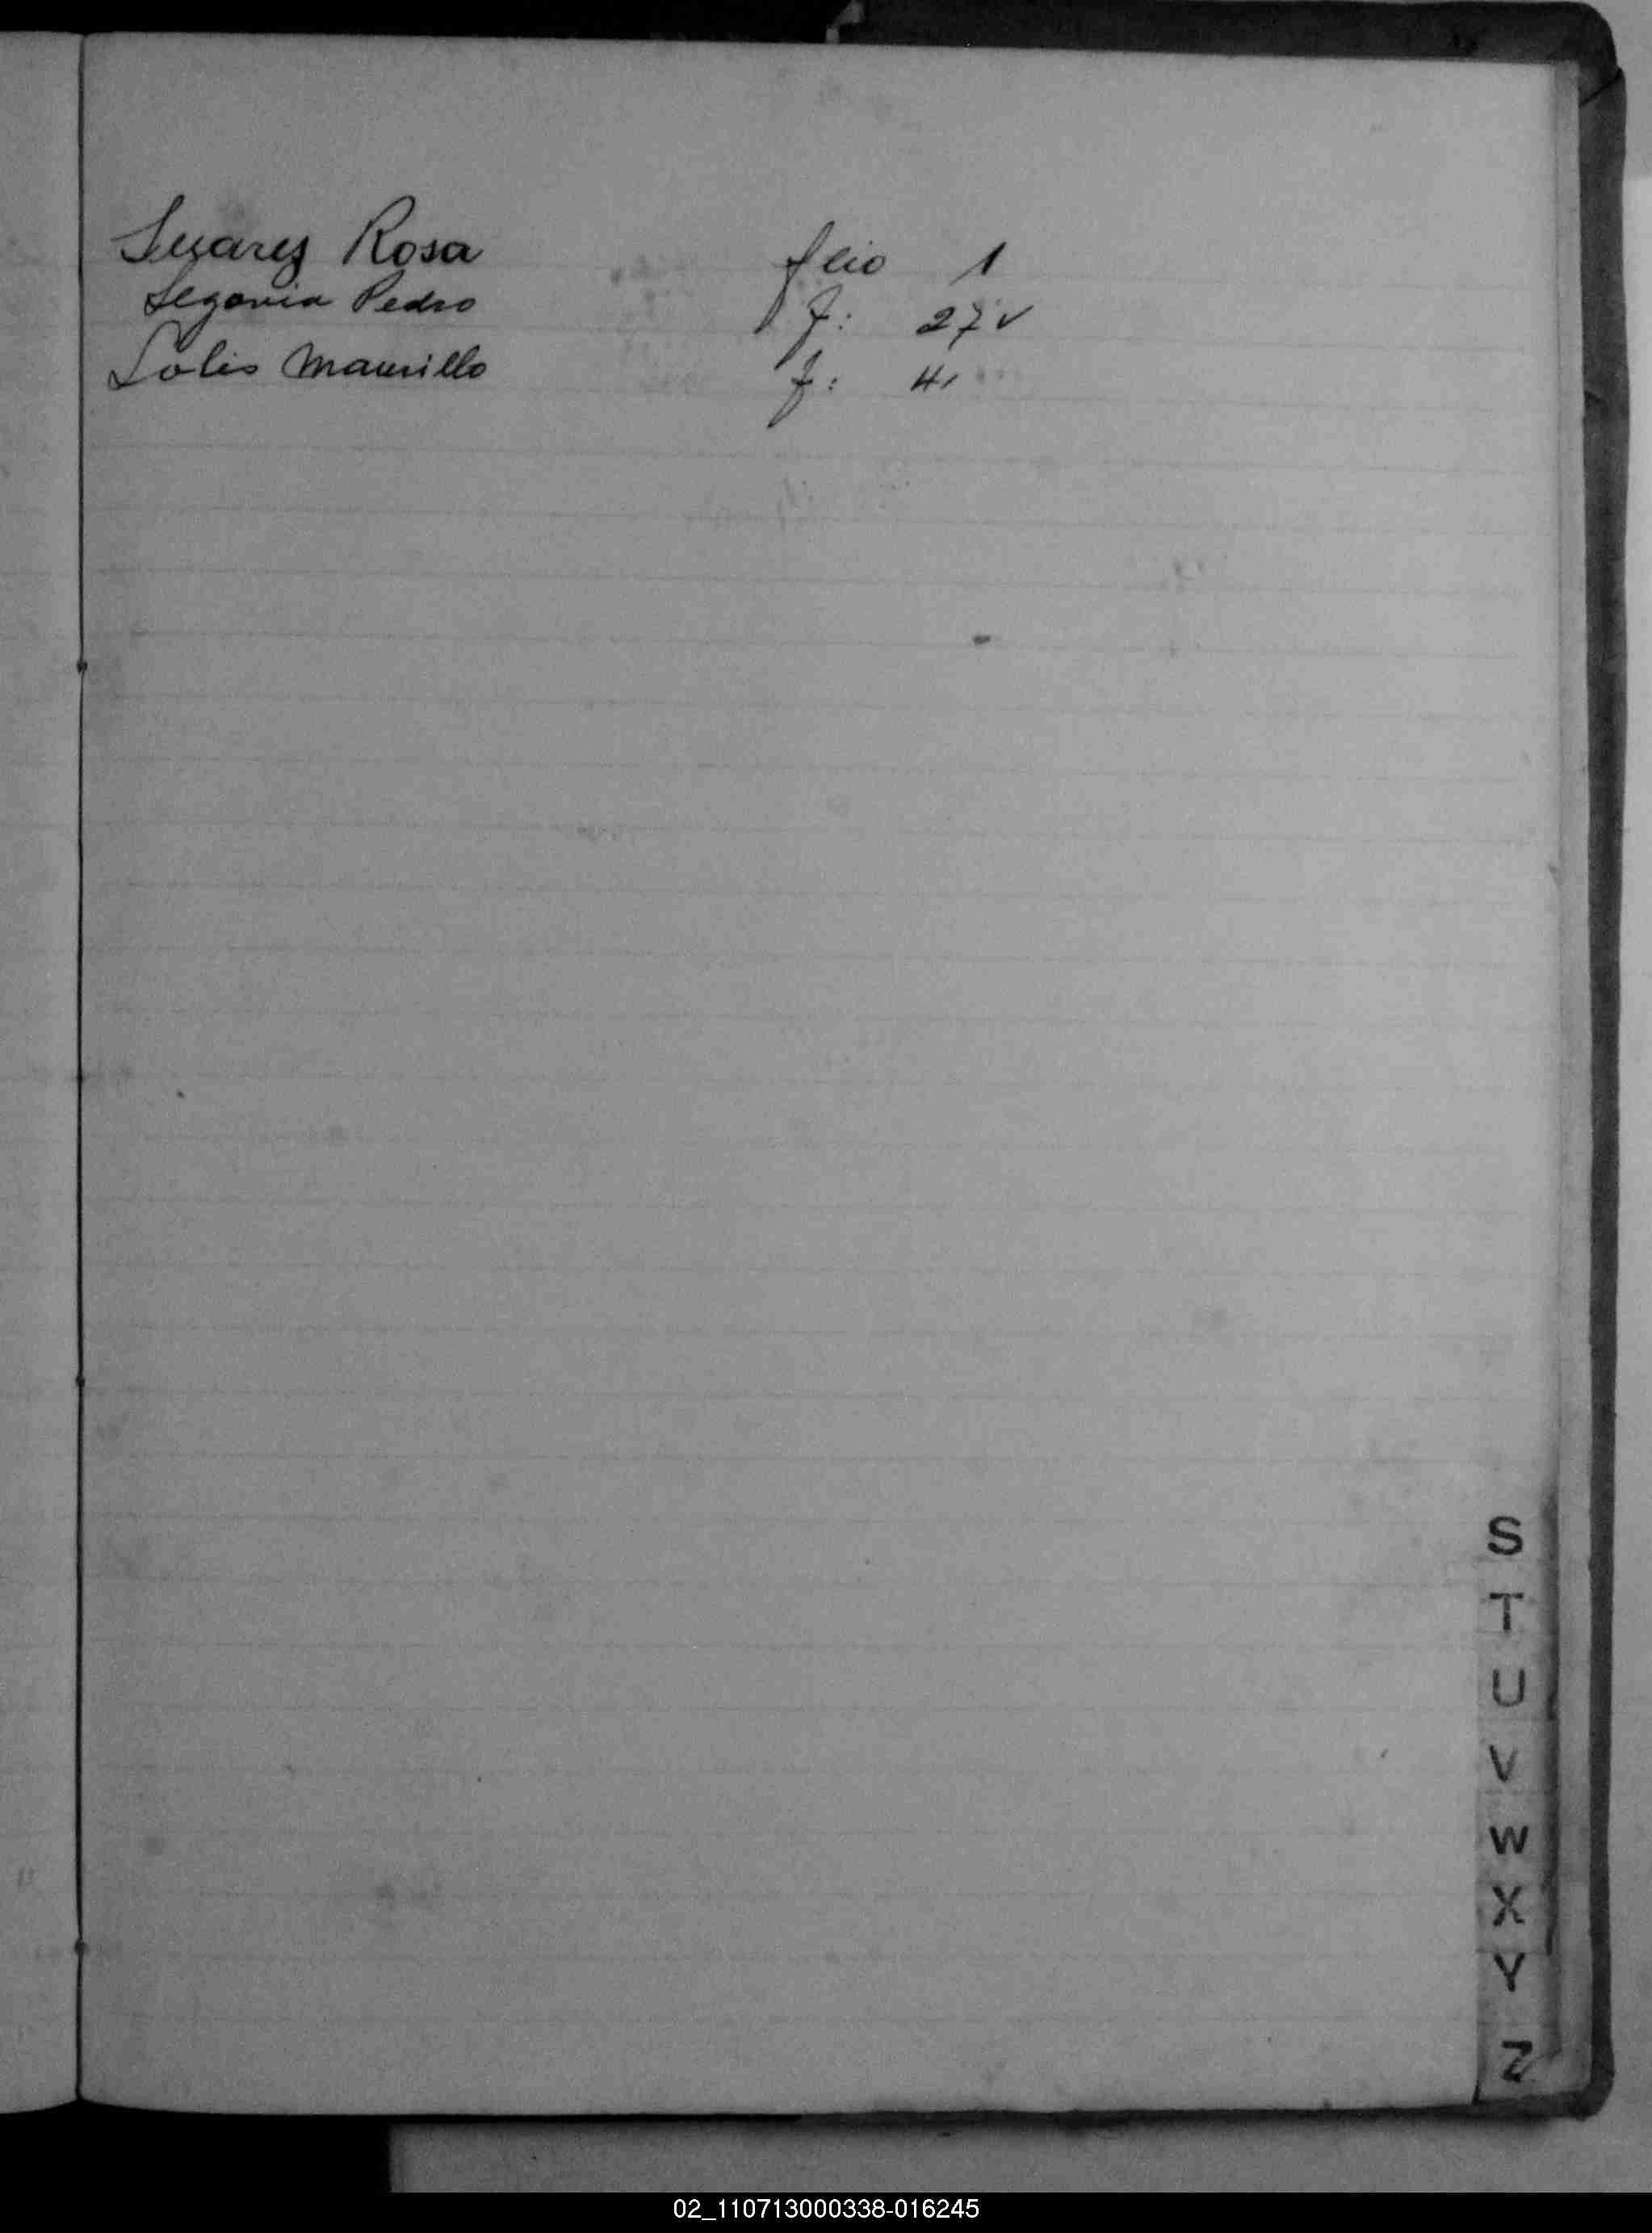 Suarez Rosa flio 1
Segovia Pedro f: 27v
Solis Maurillo f: 41
S
T
U
V
W
X
Y
Z
02_110713000338-016245